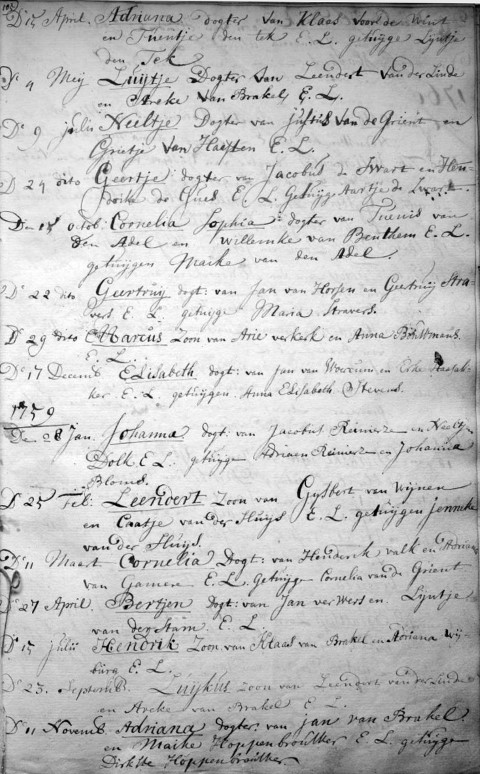 D' 15 April. Adriana dogter van Klaas voor de Wint
en Tuentje den tek E. L. getuyge Lyntje
den Tek
D' 4 Meij Luijtje Dogter van Leendert van der Linde
en Areke van Brakel, E. L.
D' 9 julii Neeltje Dogter van justus van de Grient en
Grietje van Haeften E. L.
D' 24 dito Geertje dogter van Jacobus de Swart en Hen
E. L. Getuyg Aartje de Swart.
Den 18 octob: Cornelia Sophia: dogter van Tuenis van
den Adel en Willemke van Benthem E. L.
getuijgen Maike van den Adel.
D' 22 dito Geertruy dogt: van Jan van Horsen en Geertruy Stra
vers E. L. getuige Maria Stravers.
D' 29 dito Marcus Zoon van Arie verkerk en Anna
E. L.
D' 17 Decemb Elisabeth. dogt: van Jan van Worcum, en
ker E. L. getuygen. Anna Elisabeth Stevens.
1759
Den 28 Jan. Johanna dogt: van Jacobus Reimerze en Neeltje
Dolk E L. getuyge Adriaen Reimerz en Johanna
Bloms.
D' 25 Feb: Leendert Zoon van Gysbert van Wijnen
en Caatje van der Sluijs E. L. getuijgen Jenneke
van der Sluijs.
D' 11 Maart Cornelia Dogt: van Henderik valk en Adriana
van Gamere E. L. Getuige Cornelia van de Grient
D' 27 April. Bertjen dogt: van Jan ver Wers en Lijntje
van der Stam E. L.
D' 15 julii Hendrik Zoon van Klaas van Brakel en Adriana Wij
burg E. L.
D' 23. Septemb. Luijkus zoon van Leendert van der Linde
en Areke van Brakel E. L.
D' 11 Novemb Adriana dogter: van jan van Brakel
en Maike Hoppenbrouwer E. L. getuyge
Dirkske Hoppenbrouwer.